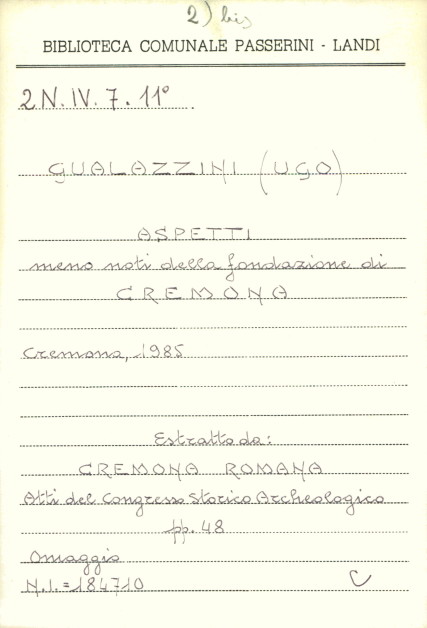 2) bis
BIBLIOTECA COMUNALE PASSERINI - LANDI
2N.IV.7.11°
GUALAZZINI (UGO)
ASPETTI
meno noti della fondazione di
CREMONA
Cremona, 1985
Estratto da:
CREMONA ROMANA
Atti del Congresso Storico Archeologico
pp. 48
Omaggio
N.I. = 184710